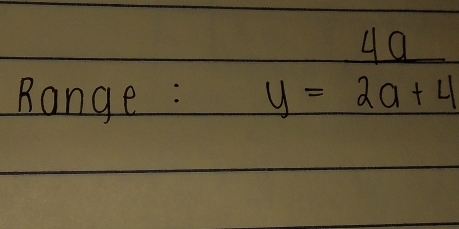 4a
Range : y = 2a + 4